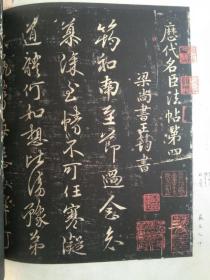 歷代名臣法帖第四
梁尚書王筠書
筠和南至節過念哀
慕深至情不可任寒凝
道體何如想比清豫弟